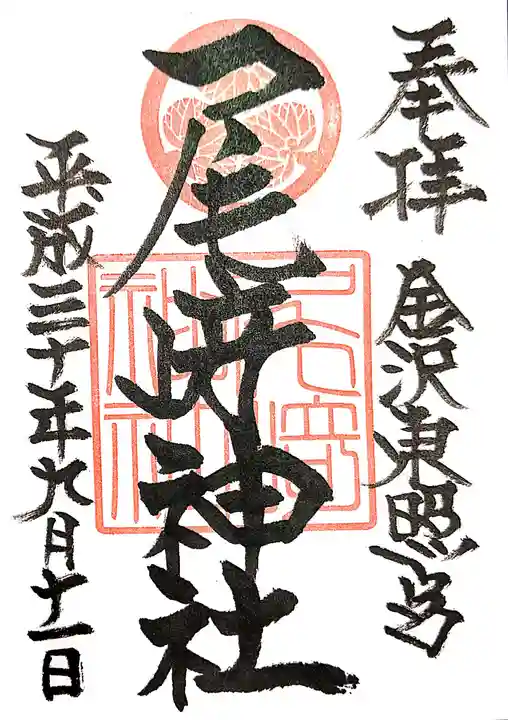 奉拝
金沢東照宮
尾崎神社
平成三十年九月十一日
尾崎神社